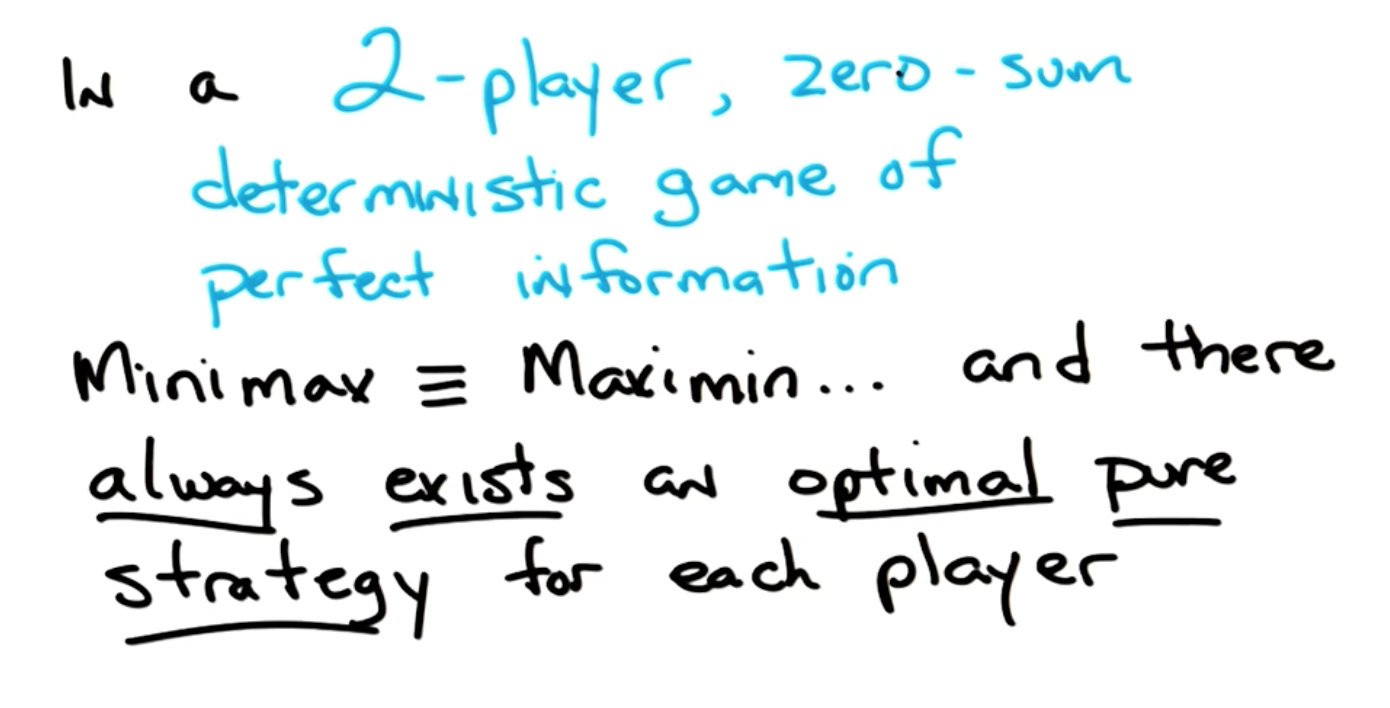 In a 2-player, zero-sum
deterministic game of
perfect information
Minimax ≡ Maximin... and there
always exists an optimal pure
strategy for each player